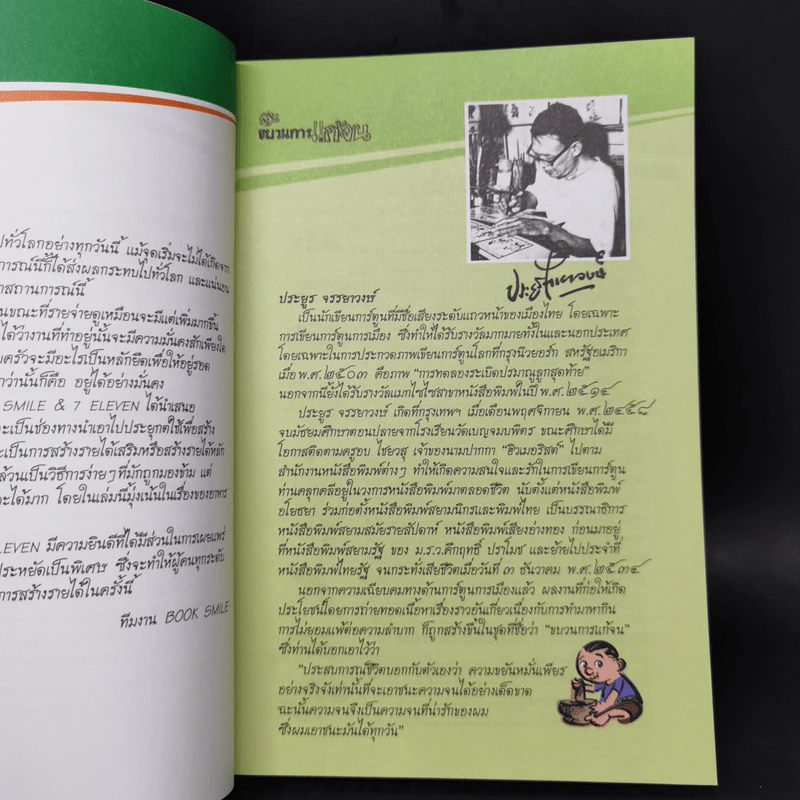 ปทั่วโลกอย่างทุกวันนี้ แม้จุดเริ่มจะไม่ได้เกิดจาก
การณ์นี้ก็ได้ส่งผลกระทบไปทั่วโลก และแน่นอน
สถานการณ์นี้
นขณะที่รายจ่ายดูเหมือนจะมีแต่เพิ่มมากขึ้น
ได้ว่างานที่ทำอยู่นั้นจะมีความมั่นคงสักเพียงใด
บครัวจะมีอะไรเป็นหลักยึดเพื่อให้อยู่รอด
กว่านั้นก็คือ อยู่ได้อย่างมั่นคง
SMILE & 7 ELEVEN ได้นำเสนอ
จะเป็นช่องทางนำเอาไปประยุกต์ใช้เพื่อสร้าง
ะเป็นการสร้างรายได้เสริมหรือสร้างรายได้หลัก
ล้วนเป็นวิธีการง่ายๆที่มักถูกมองข้าม แต่
จะได้มาก โดยในเล่มนี้มุ่งเน้นในเรื่องของอาหาร
ELEVEN มีความยินดีที่ได้มีส่วนในการเผยแพร่
ประหยัดเป็นพิเศษ ซึ่งจะทำให้ผู้คนทุกระดับ
การสร้างรายได้ในครั้งนี้
ทีมงาน BOOK SMILE
ขบวนการแก้จน
ประยูร จรรยาวงษ์
ประยูร จรรยาวงษ์
เป็นนักเขียนการ์ตูนที่มีชื่อเสียงระดับแถวหน้าของเมืองไทย โดยเฉพาะ
การเขียนการ์ตูนการเมือง ซึ่งทำให้ได้รับรางวัลมากมายทั้งในและนอกประเทศ
โดยเฉพาะในการประกวดภาพเขียนการ์ตูนโลกที่กรุงนิวยอร์ก สหรัฐอเมริกา
เมื่อ พ.ศ.๒๕๐๓ คือภาพ "การทดลองระเบิดปรมาณูลูกสุดท้าย"
นอกจากนี้ยังได้รับรางวัลแมกไซไซสาขาหนังสือพิมพ์ในปี พ.ศ.๒๕๑๔
ประยูร จรรยาวงษ์ เกิดที่กรุงเทพฯ เมื่อเดือนพฤศจิกายน พ.ศ.๒๔๕๘
จบมัธยมศึกษาตอนปลายจากโรงเรียนวัดเบญจมบพิตร ขณะศึกษาได้มี
โอกาสติดตามครูอบ ไชยวสุ เจ้าของนามปากกา "ฮิวเมอริสต์" ไปตาม
สำนักงานหนังสือพิมพ์ต่างๆ ทำให้เกิดความสนใจและรักในการเขียนการ์ตูน
ท่านคลุกคลีอยู่ในวงการหนังสือพิมพ์มาตลอดชีวิต นับตั้งแต่หนังสือพิมพ์
อโยธยา ร่วมก่อตั้งหนังสือพิมพ์สยามนิกรและพิมพ์ไทย เป็นบรรณาธิการ
หนังสือพิมพ์สยามสมัยรายสัปดาห์ หนังสือพิมพ์เสียงอ่างทอง ก่อนมาอยู่
ที่หนังสือพิมพ์สยามรัฐ ของ ม.ร.ว.คึกฤทธิ์ ปราโมช และย้ายไปประจำที่
หนังสือพิมพ์ไทยรัฐ จนกระทั่งเสียชีวิตเมื่อวันที่ ๓ ธันวาคม พ.ศ.๒๕๓๕
นอกจากความเฉียบคมทางด้านการ์ตูนการเมืองแล้ว ผลงานที่ก่อให้เกิด
ประโยชน์โดยการถ่ายทอดเนื้อหาเรื่องราวอันเกี่ยวเนื่องกับการทำมาหากิน
การไม่ยอมแพ้ต่อความลำบาก ก็ถูกสร้างขึ้นในชุดที่ชื่อว่า "ขบวนการแก้จน"
ซึ่งท่านได้บอกเอาไว้ว่า
"ประสบการณ์ชีวิตบอกกับตัวเองว่า ความขยันหมั่นเพียร
อย่างจริงจังเท่านั้นที่จะเอาชนะความจนได้อย่างเด็ดขาด
ฉะนั้นความจนจึงเป็นความจนที่น่ารักของผม
ซึ่งผมเอาชนะมันได้ทุกวัน"